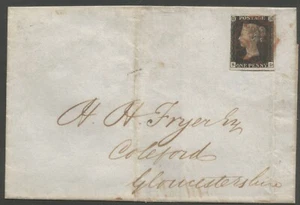 POSTAGE
ONE PENNY
H. H. Fryer Esq
Coleford
Gloucestershire